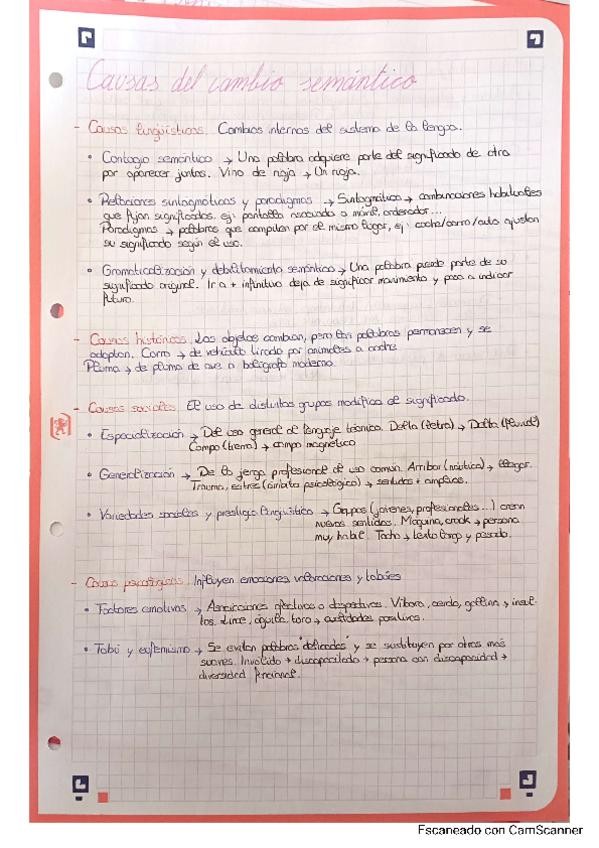 Causas del cambio semántico
- Causas lingüísticas. Cambios internos del sistema de la lengua.
• Contagio semántico → Una palabra adquiere parte del significado de otra
por aparecer juntos. Vino de rioja → Un rioja.
• Relaciones sintagmáticas y paradigmas → Sintagmática → combinaciones habituales
que fijan significados. ej: pantalla asociado a móvil, ordenador...
Paradigmas → palabras que compiten por el mismo lugar, ej: coche/carro/auto ajustan
su significado según el uso.
• Gramaticalización y debilitamiento semántico → Una palabra pierde parte de su
significado original. Ir a + infinitivo deja de significar movimiento y pasa a indicar
futuro.
- Causas históricas. Los objetos cambian, pero las palabras permanecen y se
adaptan. Carro → de vehículo tirado por animales a coche
Pluma → de pluma de ave a bolígrafo moderno.
- Causas sociales. El uso de distintos grupos modifica el significado.
• Especialización → Del uso general al lenguaje técnico. Delta (letra) → Delta (fluvial)
Campo (tierra) → campo magnético
• Generalización → De la jerga profesional al uso común. Arribar (náutica) → llegar.
Trauma, estrés (ámbito psicológico) → sentidos + amplios.
• Variedades sociales y prestigio lingüístico → Grupos (jóvenes, profesionales...) crean
nuevos sentidos. Máquina, crack → persona
muy hábil. Tocho → texto largo y pesado.
- Causas psicológicas. Influyen emociones valoraciones y tabúes
• Factores emotivos → Asociaciones afectivas o despectivas. Víbora, cerdo, gallina → insul-
tos. Lince, águila, toro → cualidades positivas.
• Tabú y eufemismo → Se evitan palabras "delicadas" y se sustituyen por otras más
suaves. Inválido → discapacitado → persona con discapacidad →
diversidad funcional.
Escaneado con CamScanner